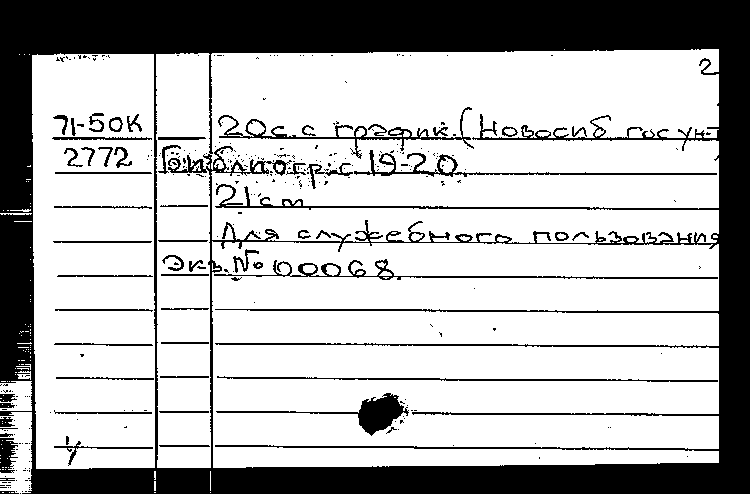 2
71-50К 20с. с график. (Новосиб гос ун-т
2772 Библиогр. с 19-20.
21 см
Для служебного пользования
Экз. № 00068.